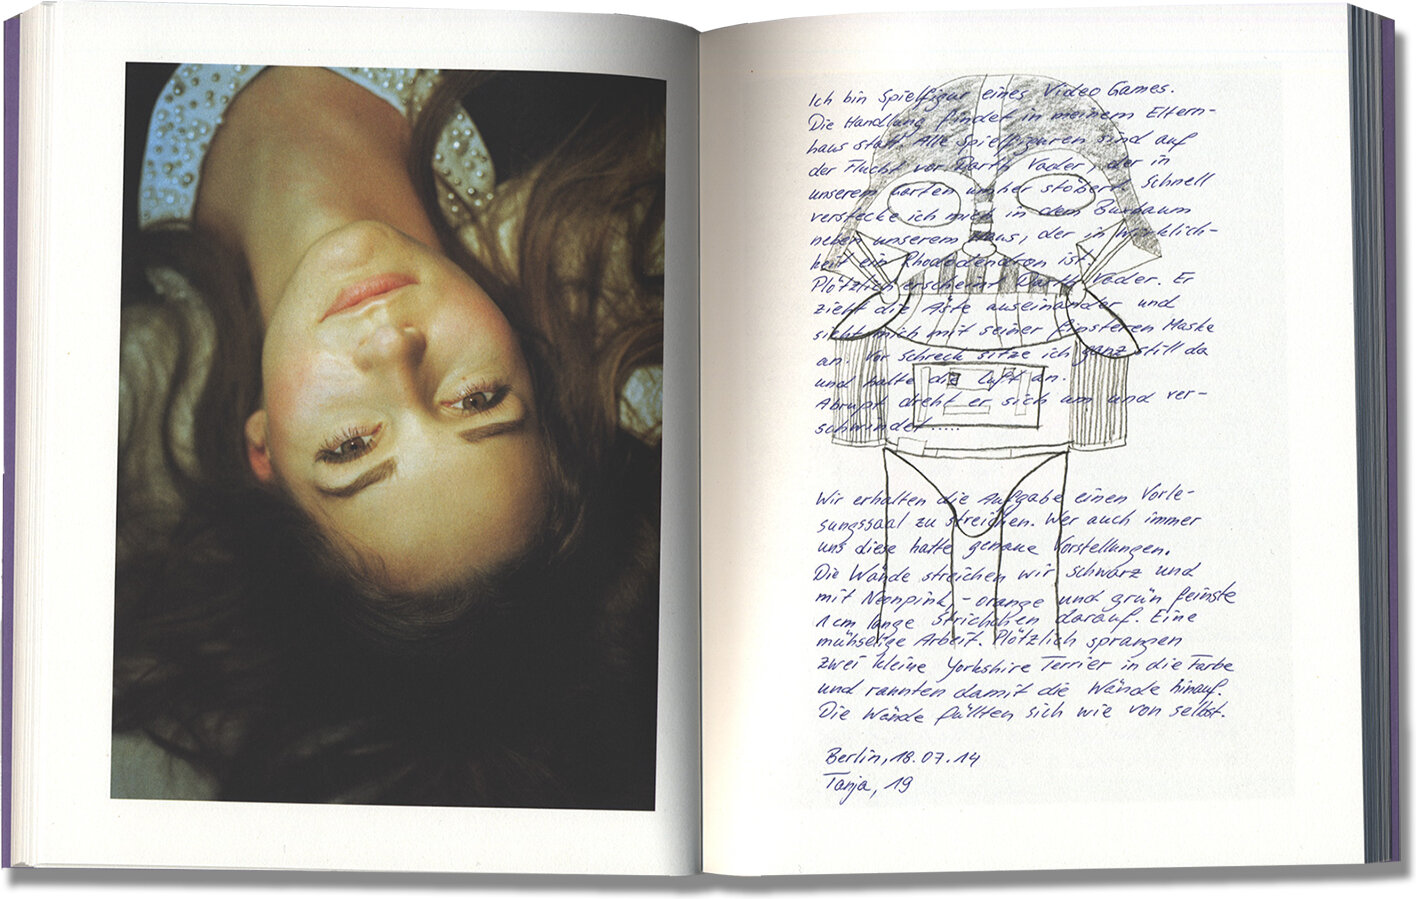 Ich bin Spielfigur eines Video Games.
Die Handlung findet in meinem Eltern-
haus statt. Alle Spielfiguren sind auf
der Flucht vor Darth Vader, der in
unserem Garten umher stöbert. Schnell
verstecke ich mich in dem Buxbaum
neben unserem Haus, der in Wirklich-
keit ein Rhododendron ist.
Plötzlich erscheint Darth Vader. Er
zieht die Äste auseinander und
sieht mich mit seiner finsteren Maske
an. Vor Schreck sitze ich ganz still da
und halte die Luft an.
Abrupt dreht er sich um und ver-
schwindet.....
Wir erhalten die Aufgabe einen Vorle-
sungssaal zu streichen. Wer auch immer
uns diese hatte genaue Vorstellungen.
Die Wände streichen wir schwarz und
mit Neonpink, -orange und grün feinste
1cm lange Strichchen darauf. Eine
mühselige Arbeit. Plötzlich sprangen
zwei kleine Yorkshire Terrier in die Farbe
und rannten damit die Wände hinauf.
Die Wände füllten sich wie von selbst.
Berlin, 18.07.14
Tanja, 19